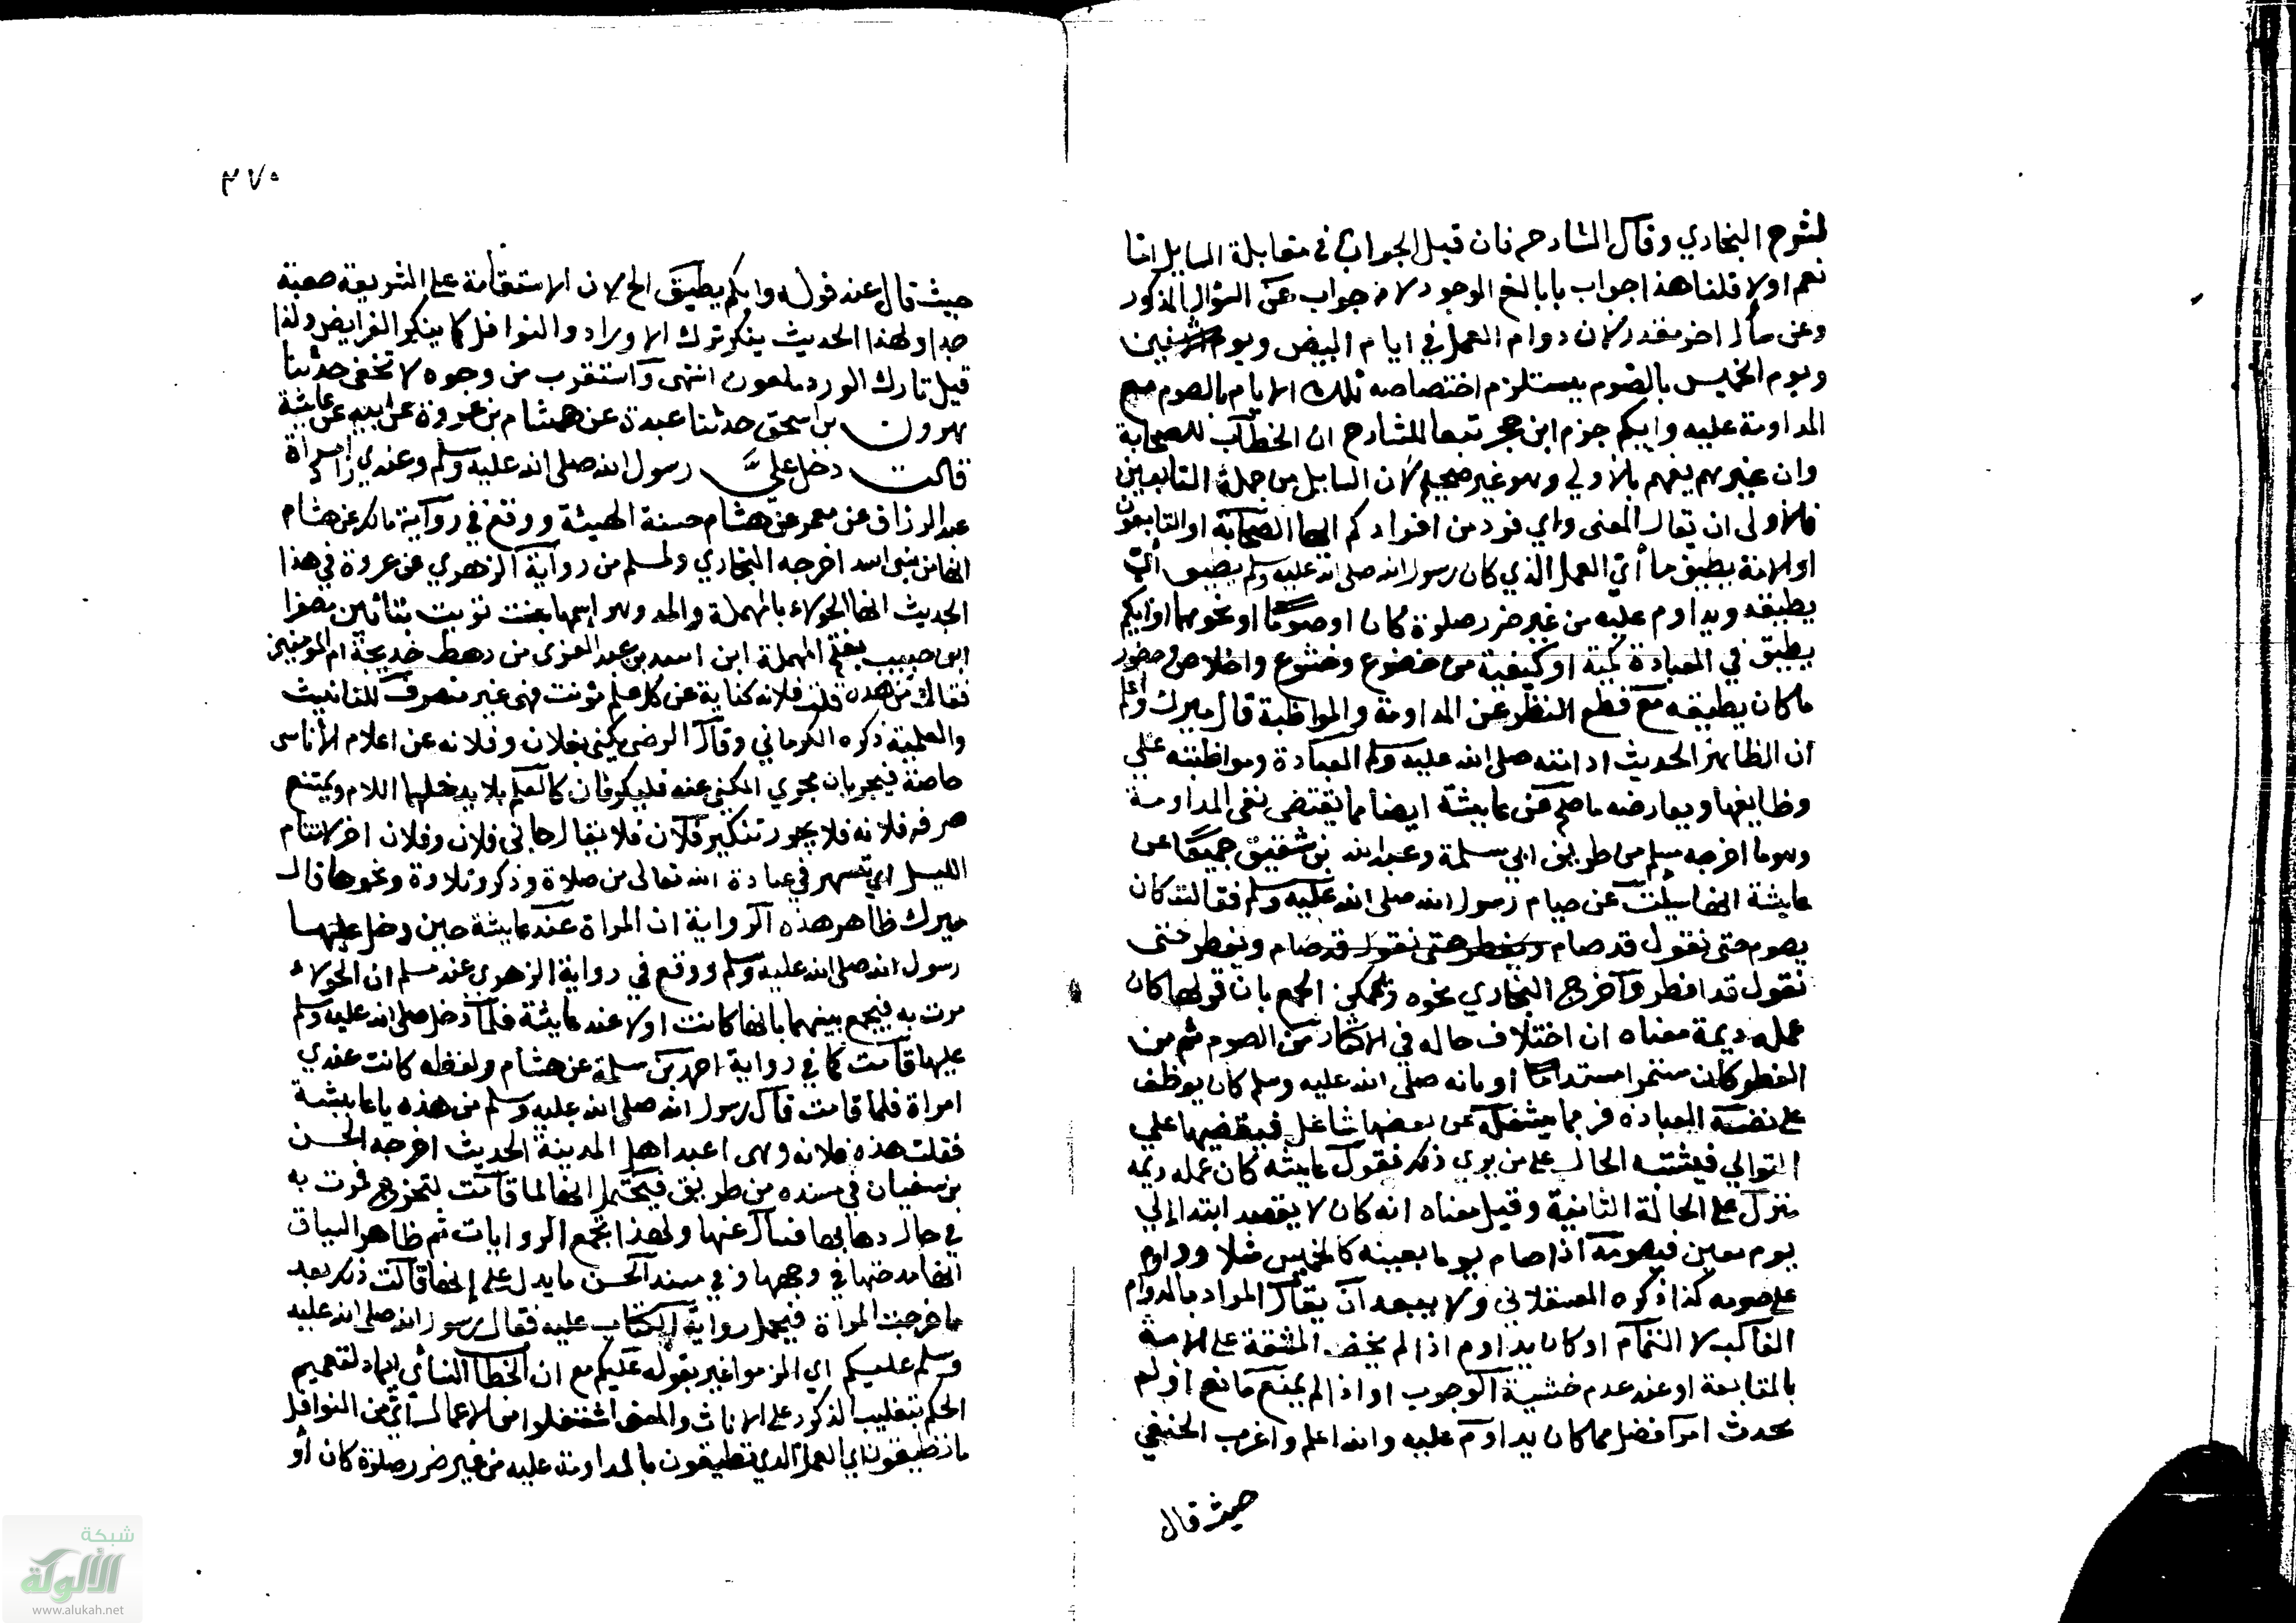 لشرح البخاري وقال الشارح فان قيل الجواب في مقابلة السايل اما
نعم او لا قلنا هذا جواب بابالغ الوجوه لانه جواب عن السؤال المذكور
وعن سأل اخر مقدر لان دوام العمل في ايام البيض ويوم الاثنين
ويوم الخميس بالصوم يستلزم اختصاصه تلك الايام بالصوم مع
المداومة عليه وايكم جزم ابن حجر تبعا للشارح ان الخطاب للصحابة
وان غيرهم يفهم بالاولي وهو غير صحيح لان السايل من جملة التابعين
فالاولى ان يقال المعنى واي فرد من افرادكم ايها الصحابة او التابعون
او الامة يطيق ما أي العمل الذي كان رسول الله صلى الله عليه وسلم يطيق أي
يطيقه ويداوم عليه من غير ضرر صلوة كان او صوما او نحوهما او ايكم
يطيق في العبادة كمية او كيفية من خضوع وخشوع واخلاص وحضور
ما كان يطيقه مع قطع النظر عن المداومة والمواظبة قال ميرك واعلم
ان الظاهر الحديث ادامته صلى الله عليه وسلم العبادة ومواظبته على
وظايفها ويعارضه ما صح عن عايشة ايضا مما يقتضي نفى المداومة
وهو ما اخرجه مسلم من طريق ابي سلمة وعبدالله بن شقيق جميعا عن
عايشة انها سيلت عن صيام رسول الله صلى الله عليه وسلم فقالت كان
يصوم حتى نقول قد صام ويفطر حتى نقول قد صام ويفطر حتى
نقول قد افطر وآخرج البخاري نحوه ويمكن الجمع بان قولها كان
عمله ديمة معناه ان اختلاف حاله في الاكثار من الصوم ثم من
الفطر كان مستمرا مستداما او بانه صلى الله عليه وسلم كان يوظف
على نفسه العبادة فربما يشغله عن بعضها شاغل فيقضيها علي
التوالي فيشتبه الحال على من يرى ذلك فقول عايشة كان عمله ديمة
منزل على الحالة الثانية وقيل معناه انه كان لا يقصد ابتدا الي
يوم معين فيصومه اذا صام يوما بعينه كالخميس مثلا وداوم
على صومه كذا ذكره العسقلاني ولا يبعد ان يقال المراد بالدوام
الغالب لا التمام او كان يداوم اذا لم يخف المشقة على الامة
بالمتابعة او عند عدم خشية الوجوب او اذا لم يمنع مانع او لم
يحدث امر افضل مما كان يداوم عليه والله اعلم واغرب الحنفي
حيث قال
٣٧٥
حيث قال عند قوله وايكم يطيق الخ لان الاستقامة على الشريعة صعبة
جدا ولهذا الحديث ينكر ترك الاوراد والنوافل كما ينكر الفرايض ولذا
قيل تارك الورد ملعون انتهى واستقرب من وجوه لا تخفى حدثنا
هرون بن اسحق حدثنا عبدة عن هشام بن عروة عن ابيه عن عايشة
قالت دخل علي رسول الله صلى الله عليه وسلم وعندي امرأة زاد
عبد الرزاق عن معمر عن هشام حسنة الهيئة ووقع في رواية مالك عن هشام
انها من بنى اسد اخرجه البخاري ولمسلم من رواية الزهري عن عروة في هذا
الحديث انها الحولاء بالمهملة والمد وهو اسمها بنت تويت بتائين مصغرا
ابن حبيب بفتح المهملة ابن اسد بن عبد العزى من رهط خديجة ام المؤمنين
فقال من هذه قلت فلانة كناية عن كل علم مؤنث فهى غير منصرف للتانيث
والعلمية ذكره الكرماني وقال الرضى يكنى بفلان وفلانه عن اعلام الأناسى
خاصة فيجريان مجرى المكنى عنه فيكونان كالعلم فلا يدخلهما اللام ويمتنع
صرف فلانه فلا يجوز تنكير فلان فلا يقال جانى فلان وفلان اخر لاتنام
الليل اي تسهر في عبادة الله تعالى من صلاة وذكر وتلاوة ونحوها قال
ميرك ظاهر هذه الرواية ان المراة عند عايشة حين دخل عليها
رسول الله صلى الله عليه وسلم ووقع في رواية الزهري عند مسلم ان الحولاء
مرت به فيجمع بينهما بانها كانت اولا عند عايشة فلما دخل صلى الله عليه وسلم
عليها قامت كما في رواية احمد بن سلمة عن هشام ولفظه كانت عندي
امراة فلما قامت قال رسول الله صلى الله عليه وسلم من هذه يا عايشة
فقلت هذه فلانه وهى اعبد اهل المدينة الحديث اخرجه الحسن
بن سفيان في مسنده من طريق فيحتمل انها لما قامت لتخرج فمرت به
في حال ذهابها فسال عنها ولهذا يجمع الروايات ثم ظاهر السياق
انها مدحتها في وجهها وفي مسند الحسن ما يدل على انها قالت ذلك بعد
ما خرجت المراة فيحمل رواية الكتاب عليه فقال رسول الله صلى الله عليه
وسلم عليكم اي الزموا غير بقوله عليكم مع ان الخطاب النسائي ايماء لتعميم
الحكم بتغليب الذكور على الاناث والمعنى اشتغلوا من الاعمال أي من النوافل
ما تطيقون اي العمل الذي تطيقون بالمداومة عليه من غير ضرر صلوة كان أو
شبكة
الألوكة
www.alukah.net